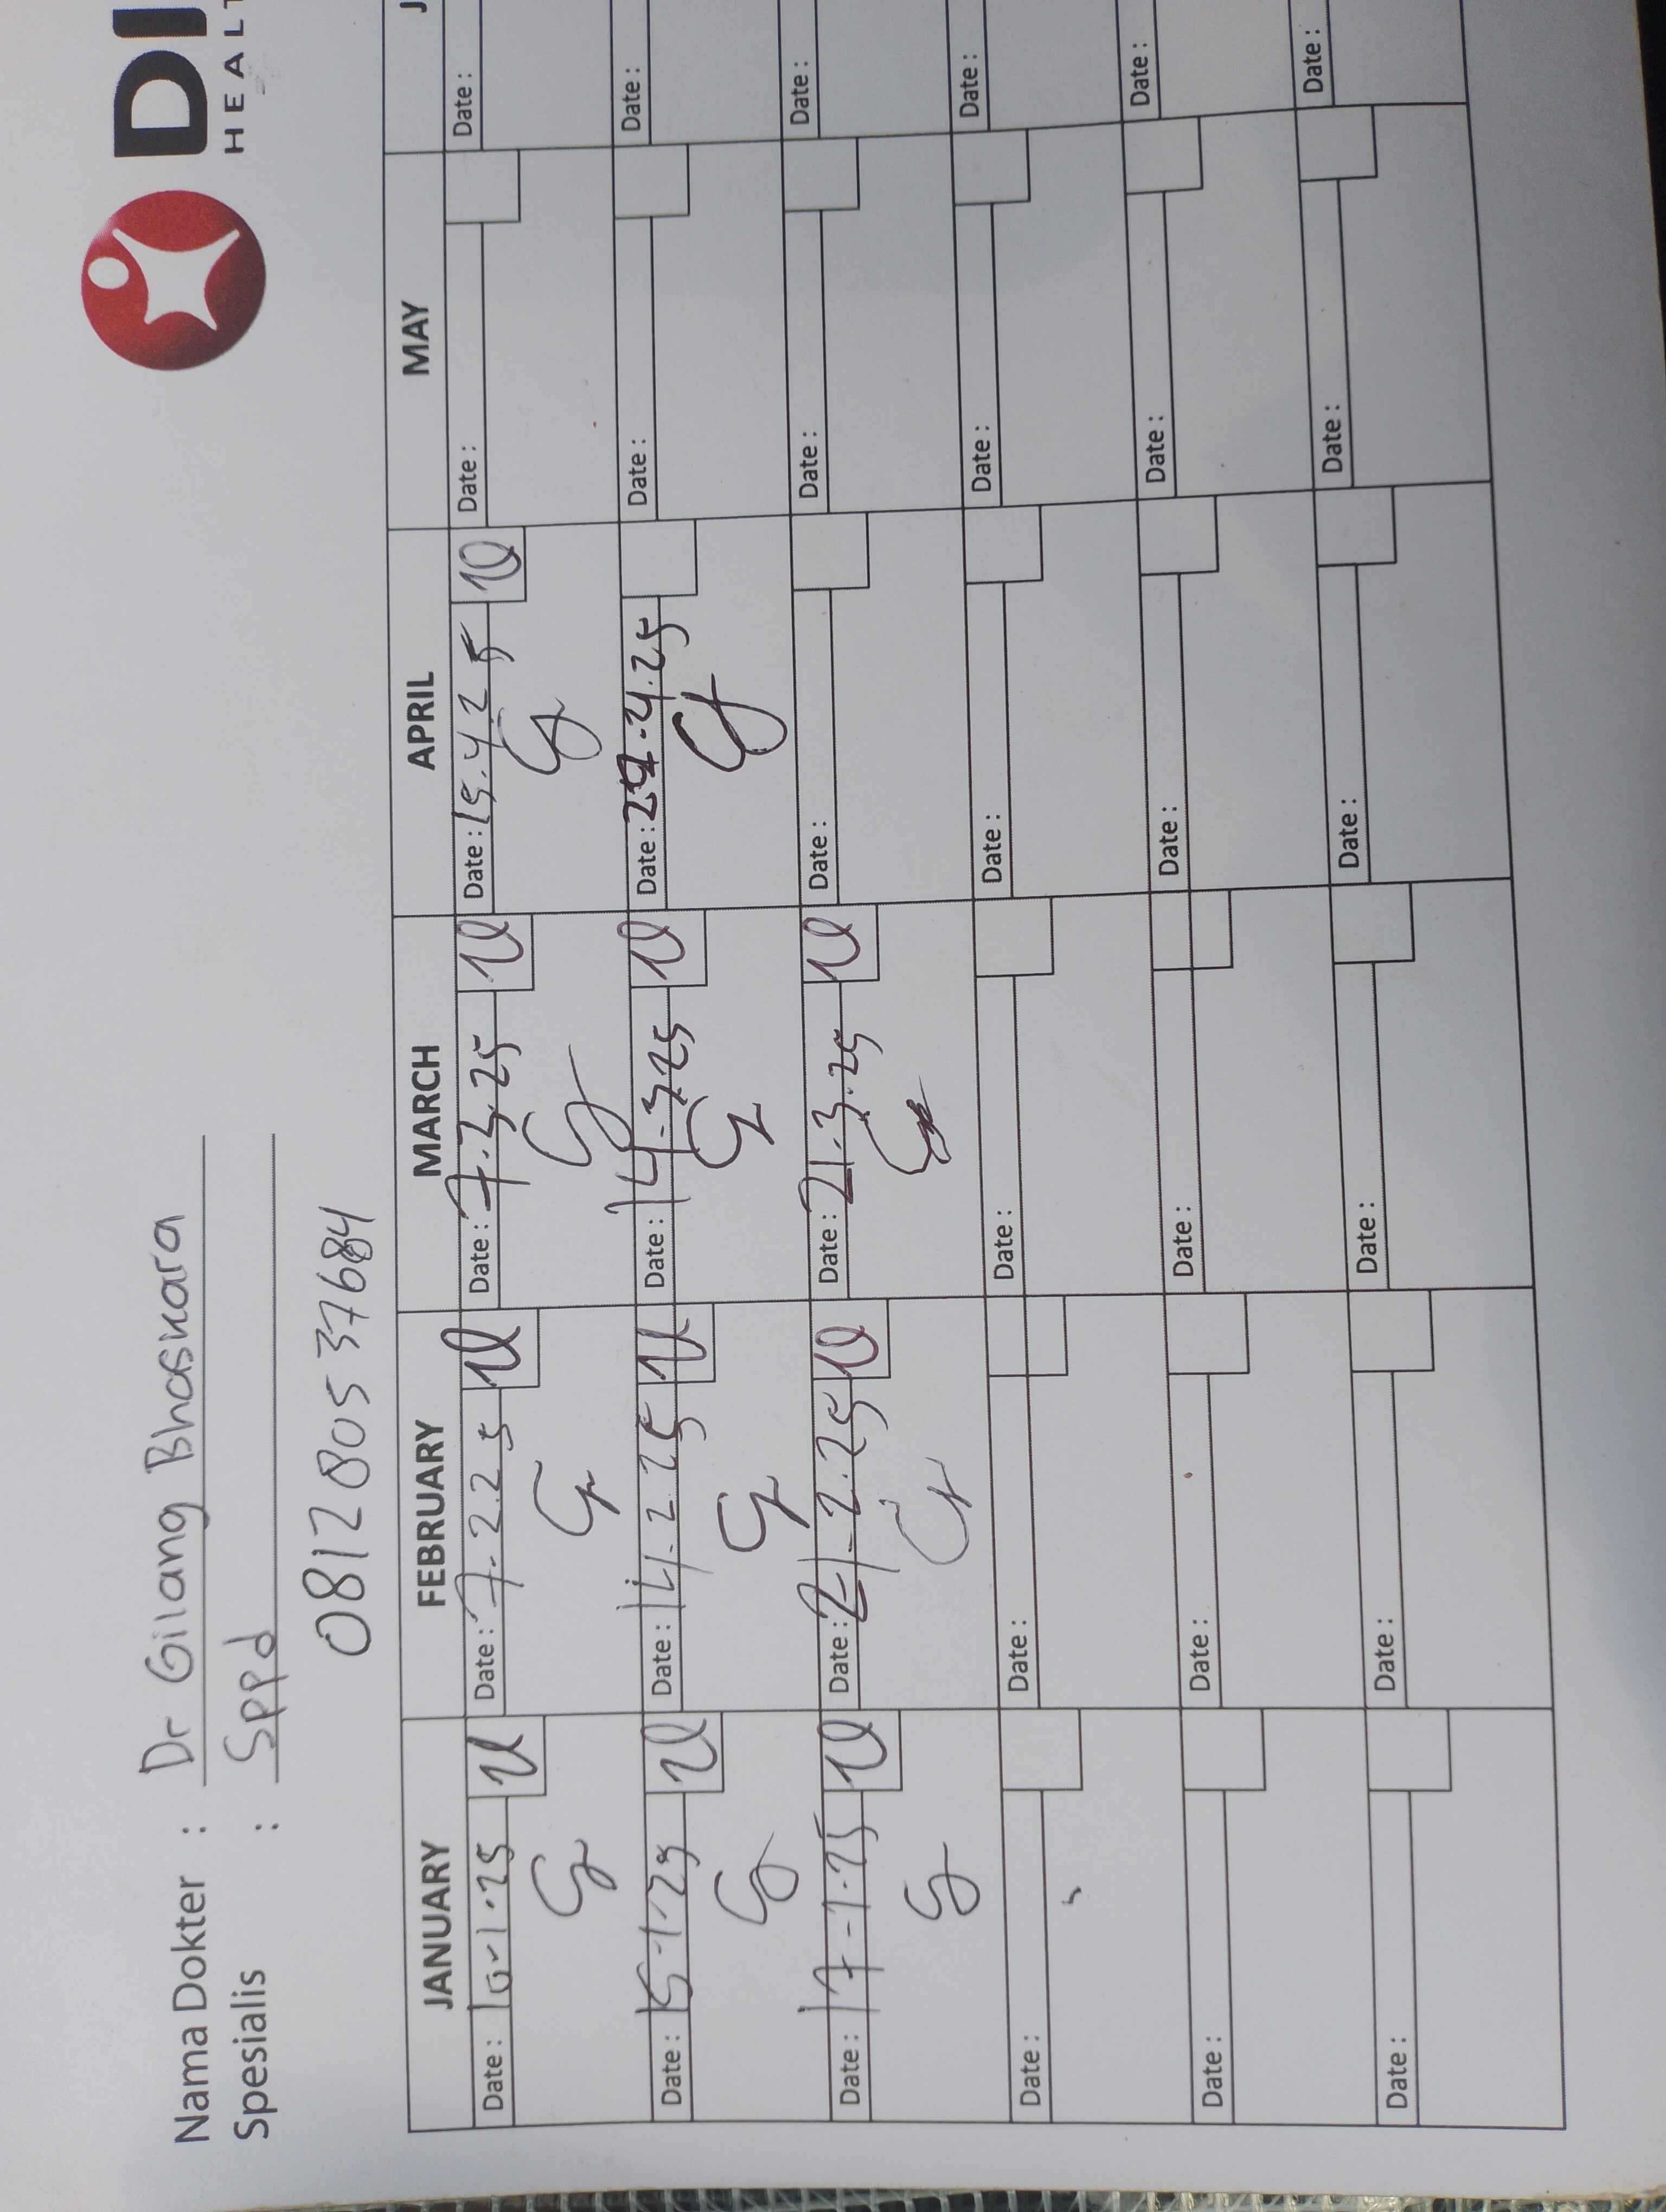 DI
HEALT
Nama Dokter : Dr Gilang Bhaskara
Spesialis : SPPd
0812 805 37684
JANUARY FEBRUARY MARCH APRIL MAY J
Date : 10-1-25 Date : 7-2.25 Date : 7.3.25 Date : 15.4.25 Date : Date :
Date : 15-1-25 Date : 14-2.25 Date : 14-3.25 Date : 29.4.25 Date : Date :
Date : 17-1-25 Date : 21-2.25 Date : 21.3.25 Date : Date : Date :
Date : Date : Date : Date : Date : Date :
Date : Date : Date : Date : Date : Date :
Date : Date : Date : Date : Date : Date :